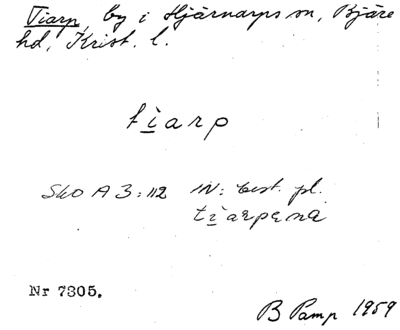 Tiarp, by i Hjärnarps sn, Bjäre
hd, Krist. l.
tìarp
SkO A 3:112 IN: best. pl.
tìarpena
Nr 7305.
B Pamp 1959